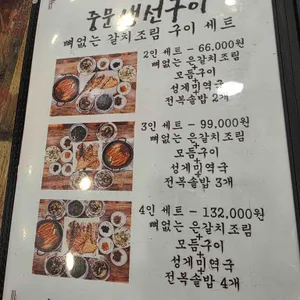 중문생선구이
뼈없는 갈치조림 구이 세트
2인 세트 - 66,000원
뼈없는 은갈치조림
+
모듬구이
+
성게미역국
+
전복솥밥 2개
3인 세트 - 99,000원
뼈없는 은갈치조림
+
모듬구이
+
성게미역국
+
전복솥밥 3개
4인 세트 - 132,000원
뼈없는 은갈치조림
+
모듬구이
+
성게미역국
+
전복솥밥 4개